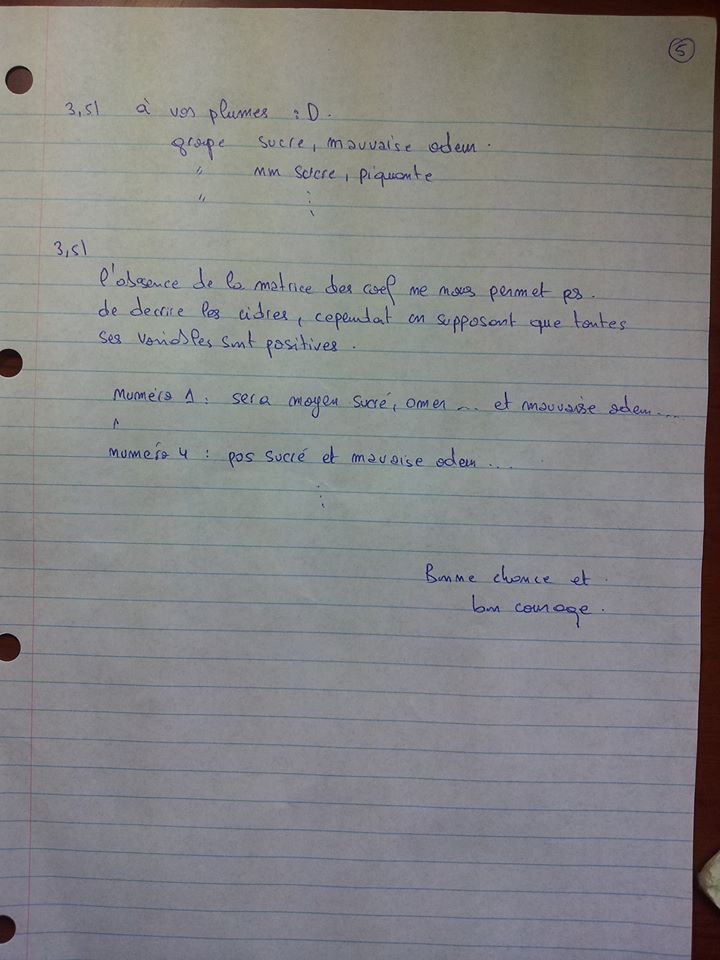 5
3,5/ à vos plumes :D.
groupe sucre, mauvaise odeur.
" nn sucre, piquante
" ⋮
3,5/
l'absence de la matrice des coef ne nous permet ps.
de decrire les cidres, cependat en supposant que toutes
ses variables sont positives.
Numéro 1 : sera moyen sucré, amer ... et mauvaise odeur....
numéro 4 : pas sucré et mavaise odeur ...
⋮
Bonne chance et.
bon courage.